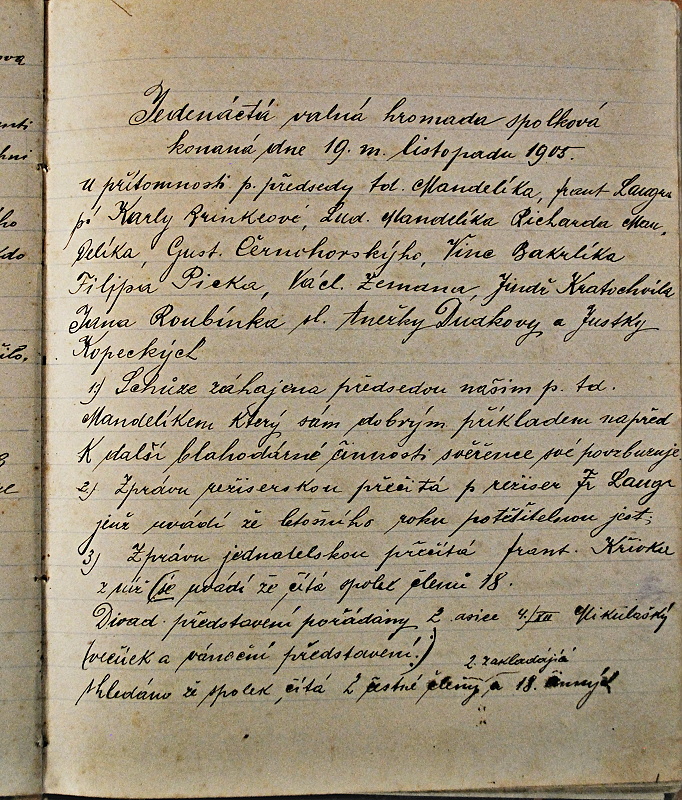 Jedenáctá valná hromada spolková
konaná dne 19. m. listopadu 1905.
u přítomnosti p. předsedy td. Mandelíka, frant Laugra
pí Karly Brinkeové, Lud. Mandelíka Richarda Man,
delíka, Gust. Černohorskýho, Vinc Bakrlíka
Filipa Picka, Václ. Zemana, Jindř Kratochvila
Jana Roubínka sl. Anežky Dudkovy a Justky
Kopeckých
1) Schůze zahájena předsedou našim p. td.
Mandelíkem který sám dobrým příkladem napřed
K další blahodárné činnosti svěřence své povzbuzuje.
2) Zprávu režiserskou přečítá p režiser Fr Laugr
jenž uvádí že letošního roku potěšitelnou jest.
3) Zprávu jednatelskou přečítá frant. Křivka
z níž (se uvádí že čítá spolek členů 18.
Divad. představení pořádány 2 asice 4./XII Mikulašký
(večírek a vánoční představení.)
2. zakládající
shledáno že spolek čítá 2 čestné členy a 18. činných
ova
ního
kdo